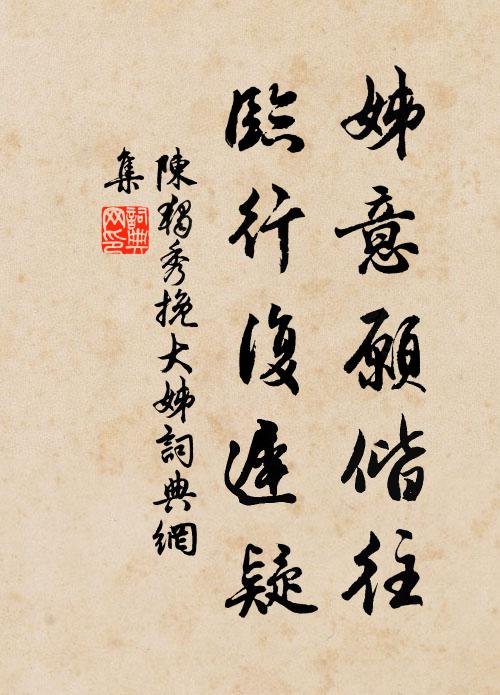 姊意願偕往
臨行復遲疑
陳獨秀挽大姊詞典網
集
詞典
网印